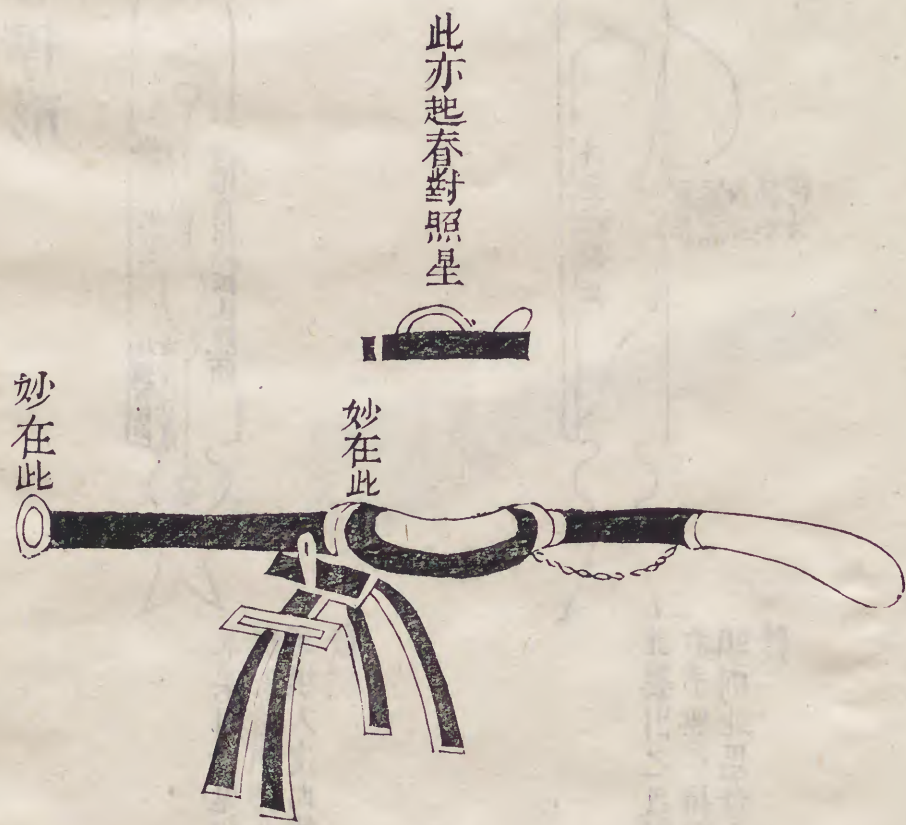 此亦起春對照星
妙在此
妙在此